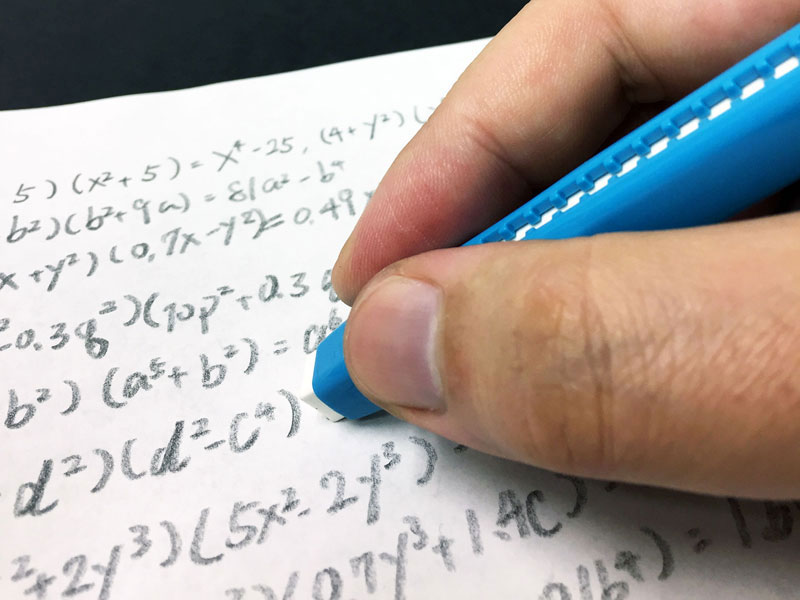 5) (x²+5) = x⁴-25, (4+y²)(
b²)(b²+9a) = 81a²-b⁴
x+y²)(0,7x-y²)= 0.49
²-0.3g²)(10p²+0.3
b²)(a⁵+b²) =
d²)(d²-c⁴)
²+2y³)(5x²-2y³)
)(0.7y³+1.4c) =
b⁴) =